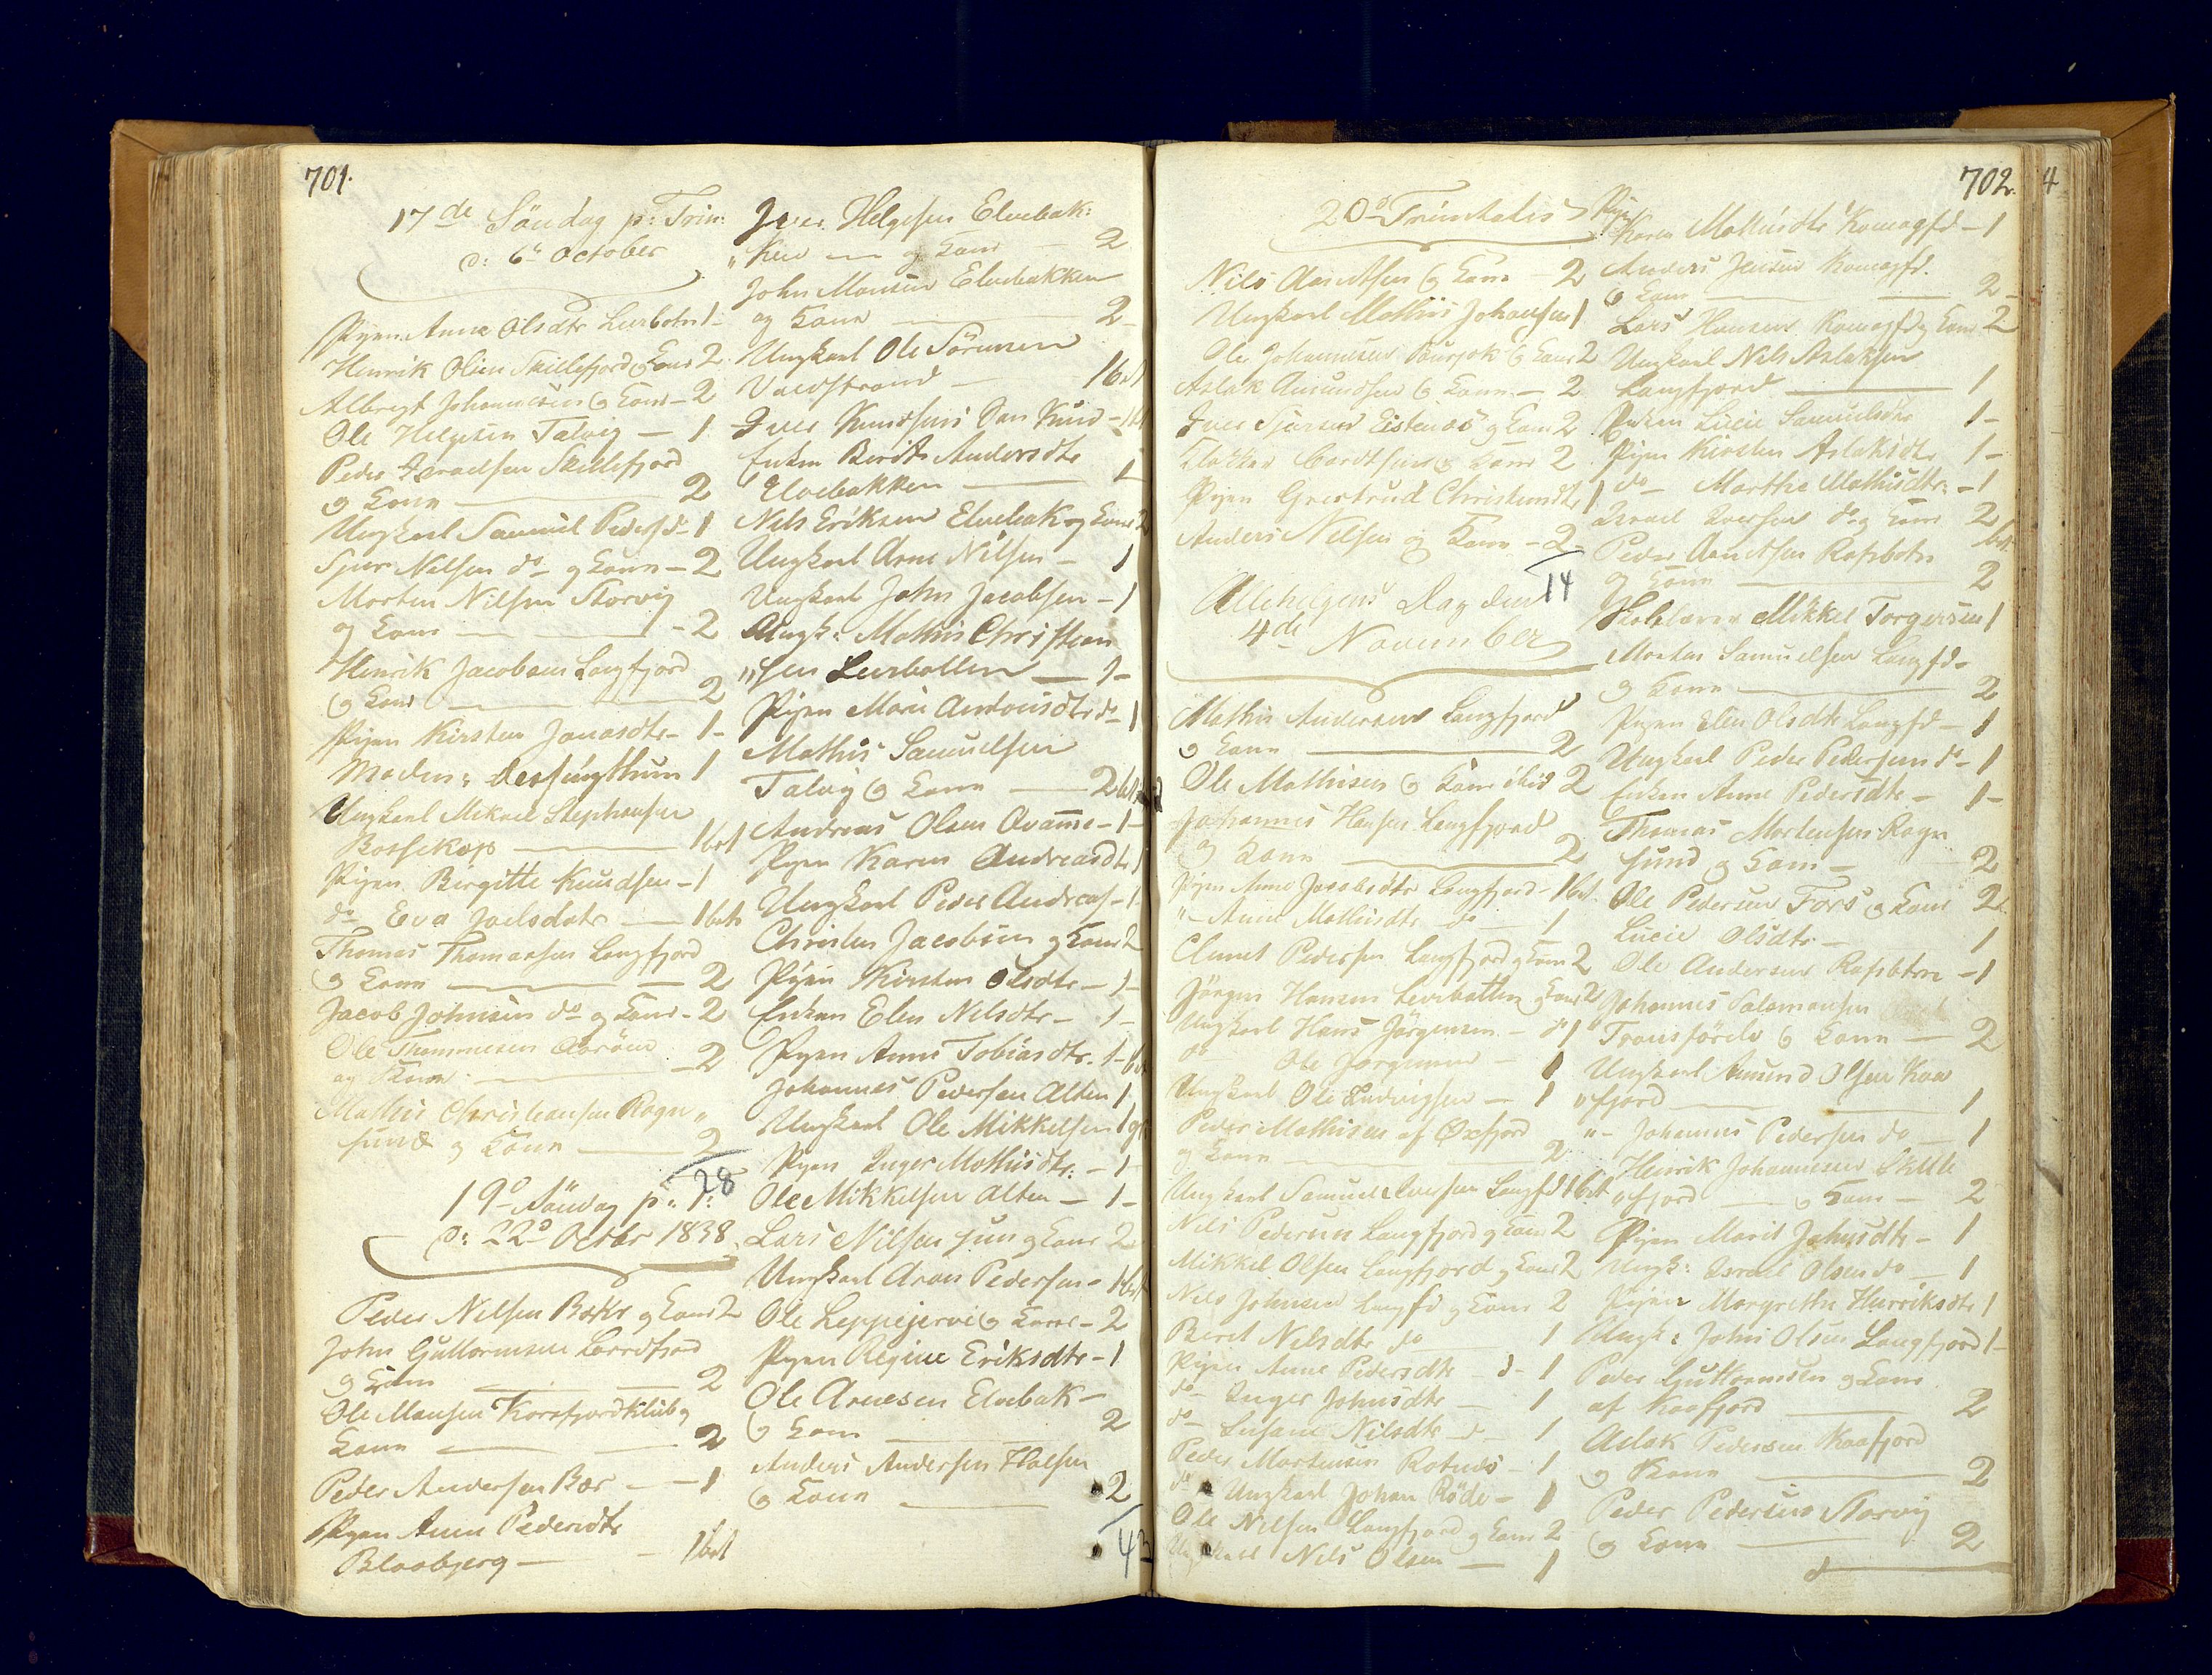 701.
17de Söndag p: Trin:
d: 6te October
Pigen Anne Olsdtr Leerbotn 1 -
Henrik Olsen Skillefjord og Kone 2
Albregt Johannesen og Kone - 2
Ole Helgesen Talvig - 1
Peder Israelsen Skillefjord
og Kone - 2
Ungkarl Samuel Peders do 1
Sjur Nilsen do og Kone - 2
Morten Nilsen Storvig
og Kone - 2
Henrik Jacobsen Langfjord
og Kone - 2
Pigen Kirsten Jonasdtr - 1 -
Madm: 1
Ungkarl Mikael Stephensen
Bossekop - 1
Pigen Birgitte Knudsen - 1
do Eva Joelsdatr - 1
Thomas Thomassen Langfjord
og Kone - 2
Jacob Johnsen do og Kone - 2
Ole Thommesen Aarøen
og Kone - 2
Mathis Christiansen Rogn "
sund og Kone - 2
28
19o Söndag p: T:
d: 22o Octbr 1838
Peder Nilsen og Kone 2
John Guttormsen
og Kone - 2
Ole Monsen Korsfjord og
Kone - 2
Peder Andersen - 1
Pigen Anne Pedersdtr
Blaabjerg - 1
Iver Helgesen Elvebak:
" Ken og Kone 2
John Monsen Elvebakken
og Kone - 2 -
Ungkarl Ole Sörensen
- 1
Iver Knudsens Søn Knud -
Enken Berit Andersdtr
Elvebakken - 1
Nils Eriksen Elvebak og Kone 2
Ungkarl Arne Nilsen - 1
Ungkarl John Jacobsen - 1
Ungk: Mathis Christian
"sen Leerbotten - 1 -
Pigen Marie do 1
Mathis Samuelsen
Talvig og Kone - 2
Andreas Olsen Qvænne - 1 -
Pigen Karen Andreasdtr 1
Ungkarl Peder Andreas - 1
Christen Jacobsen og Kone 2
Pigen Kirsten Olsdtr - 1 -
Enken Elen Nilsdtr - 1 -
Pigen Anne Tobiasdtr. 1 -
Johannes Pedersen Alten 1
Ungkarl Ole Mikkelsen 1
Pigen Inger Mathisdtr: - 1
Ole Mikkelsen Alten - 1 -
Lars Nilsen jun og Kone 2
Ungkarl Aron Pedersen - 1
Ole Leppejervi og Kone - 2
Pigen Regine Eriksdtr - 1
Ole Arnesen Elvebak -
og Kone - 2
Anders Andersen
og Kone - 2
43
702. 4
20o Trinitatis
Nils Arntsen og Kone - 2
Ungkarl Mathis Johansen 1
Ole Johannesen og Kone 2
Aslak Amundsen og Kone - 2
Iver Sjursen og Kone 2
Klokker og Kone 2
Pigen Gjertrud Christensdtr 1
Anders Nilsen og Kone - 2 -
14
Allehelgens Dag den
4de November
Mathis Andersen Langfjord
og Kone - 2
Ole Mathisen og Kone 2
Johannes Hansen Langfjord
og Kone - 2
Pigen Anne Jacobsdtr Langfjord - 1
" - Anne Mathisdtr do - 1
Clemet Pedersen Langfjord og Kone 2
Jörgen Hansen Leerbotten og Kone 2
Ungkarl Hans Jörgensen - do 1
do Ole Jörgensen - 1
Ungkarl Ole Ludvigsen - 1
Peder Mathisen af Øxfjord
og Kone - 2
Ungkarl Samuel Iversen Langfd 1
Nils Pedersen Langfjord og Kone 2
Mikkel Olsen Langfjord og Kone 2
Nils Johnsen Langfd og Kone 2
Beret Nilsdtr do 1
Pigen Anne Pedersdtr - d - 1
do Inger Johnsdtr - 1
do Susane Nilsdtr - d - 1
Peder Mortensen - 1
do Ungkarl Johan Röde - 1
Ole Nilsen Langfjord og Kone 2
Ungkarl Nils Olsen - 1
Pige
Karen Mathisdtr Komagfd - 1
Anders Jensen Komagfd.
og Kone - 2 -
Lars Hansen Komagfd og Kone 2
Ungkarl Nils Aslaksen
Langfjord - 1
Enken Lucie Samuelsdtr 1 -
Pigen Kirsten Aslaksdtr 1 -
do - Marthe Mathisdtr: - 1
Israel Iversen do og Kone 2
Peder Arntsen Rafsbotn
og Kone - 2
Skolelærer Mikkel Torgersen 1
Morten Samuelsen Langfd -
og Kone - 2
Pigen Elen Olsdtr Langfd - 1
Ungkarl Peder Pedersen do - 1
Enken Anne Pedersdtr - 1 -
Thomas Mortensen Rogn
sund og Kone - 2
Ole Pedersen Fors og Kone 2
Lucie Olsdtr - 1
Ole Andersen - 1
Johannes Salamonsen
og Kone - 2
Ungkarl Amund Olsen Kaa
"fjord - 1
" - Johannes Pedersen do - 1
Henrik Johannesen Skille
"fjord - og Kone - 2
Pigen Marit Johnsdtr - 1
Ungk: Israel Olsen do - 1
Pigen Margrethe Henriksdtr 1
Ungk: John Olsen Langfjord 1 -
Peder Guttormsen og Kone
af Kaafjord - 2
Aslak Pedersen Kaafjord
og Kone - 2
Peder Pedersen Storvig
og Kone - 2